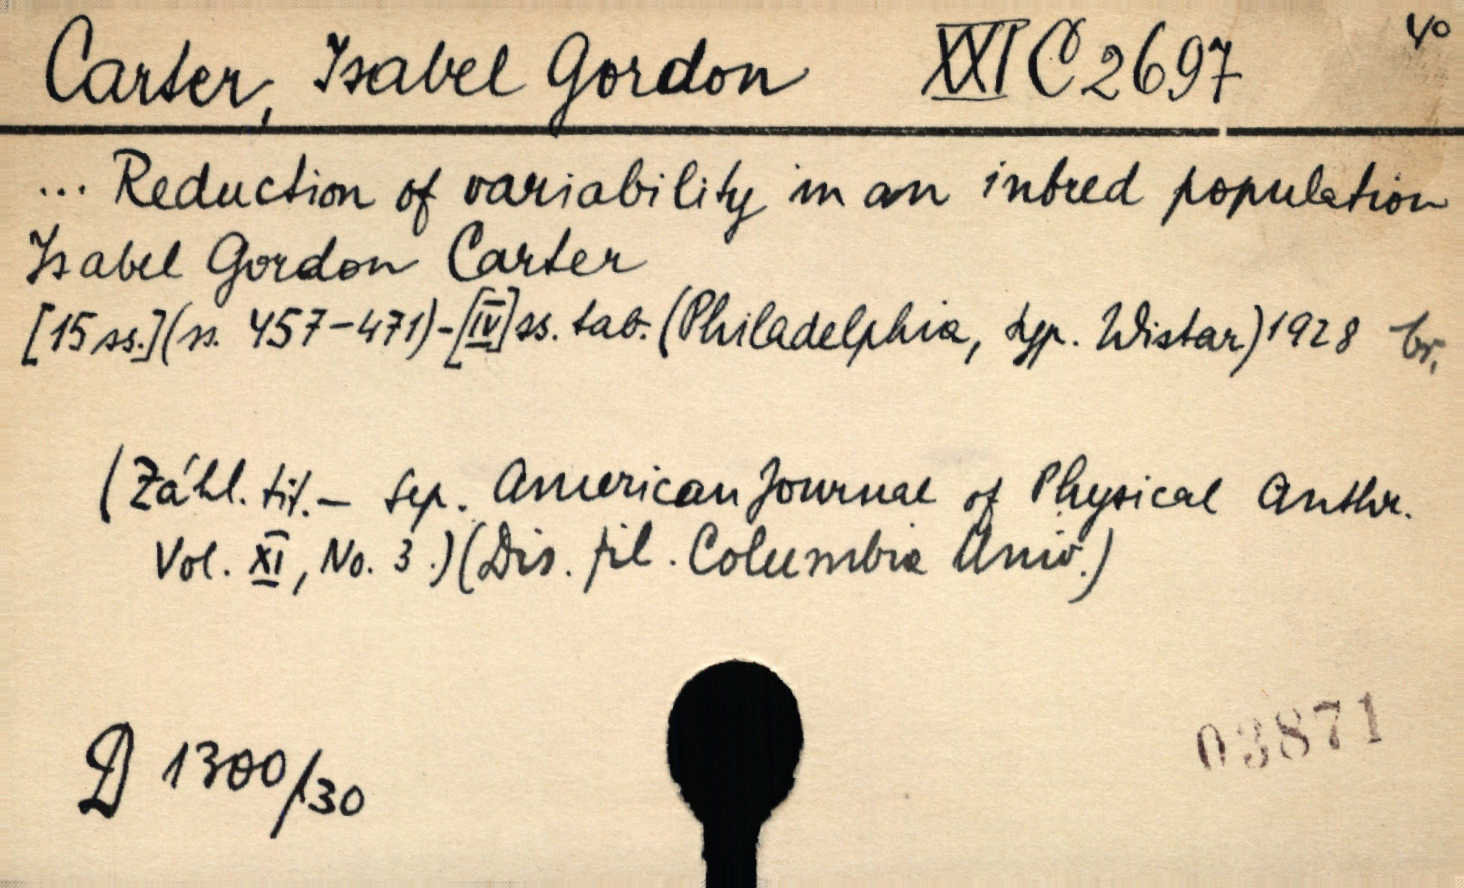 40
Carter, Isabel Gordon XXI C 2697
... Reduction of variability in an inbred population
Isabel Gordon Carter
[15 ss.] (ss. 457-471)-[IV] ss. tab. (Philadelphia, typ. Wistar) 1928 br.
(Záhl. tit. - Sep. American Journal of Physical Anthr.
Vol. XI, No. 3.) (Dis. fil. Columbia Univ.)
D 1300/30
03871